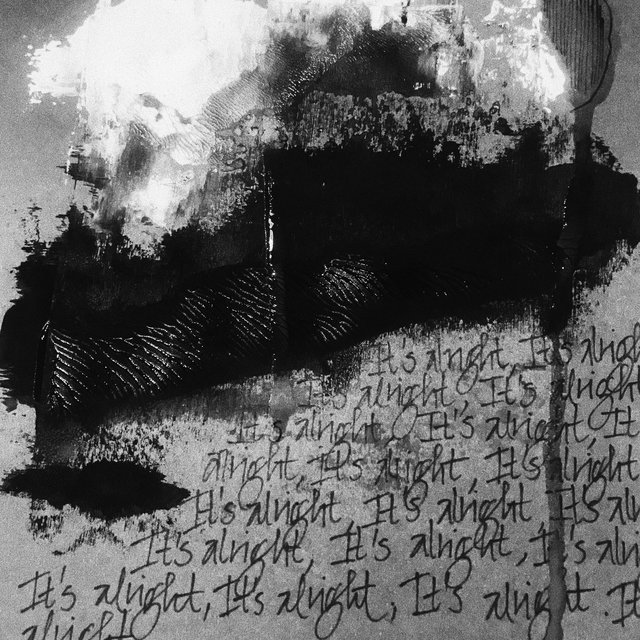 It's alright, It's alrigh
It's alright, It's alright
It's alright, It's alright, It
alright, It's alright, It's alright
It's alright, It's alright, It's al
It's alright, It's alright, It's alri
It's alright, It's alright, It's alright. It
alright